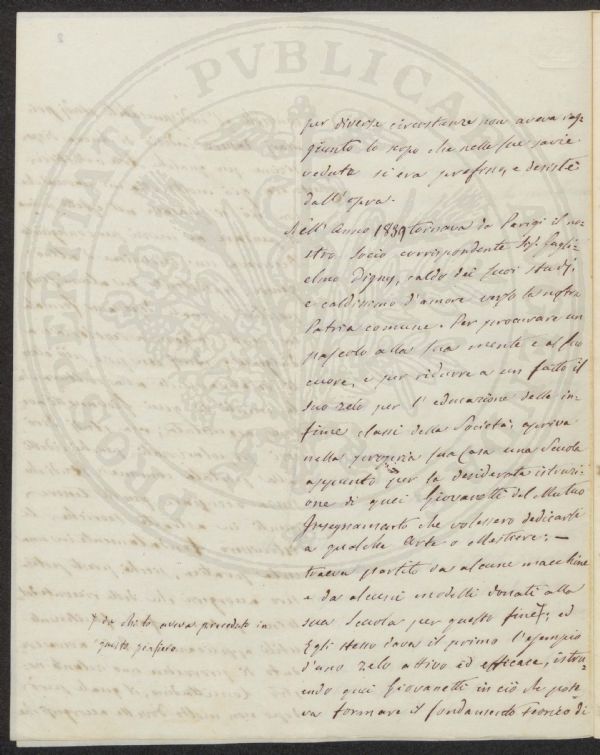 per diverse circostanze non aveva rag-
giunto lo scopo che nelle sue savie
vedute si era prefisso, e desistè
dall'opra.
Nell'Anno 1839 tornava da Parigi il no-
stro Socio corrispondente Sig. Gugli-
elmo Digny, caldo dei suoi studj,
e caldissimo d'amore verso la nostra
Patria comune. Per procurare un
pascolo alla sua mente e al suo
cuore, e per ridurre a un fatto il
suo zelo per l'educazione delle in-
fime classi della Società; apriva
nella propria sua Casa una Scuola
appunto per la desiderata istruzi-
one di quei Giovanetti del Mutuo
Insegnamento che volessero dedicarsi
a qualche Arte o Mestiere; —
traeva partito da alcune macchine
e da alcuni modelli donati alla
sua Scuola per questo fine; ed
Egli stesso dava il primo l'esempio
d'uno zelo attivo ed efficace, istru-
endo quei Giovanetti in ciò che pote-
va formare il fondamento Teorico di
da chi lo aveva preceduto in
questo pensiero
PVBLICA
PROSPERITATI